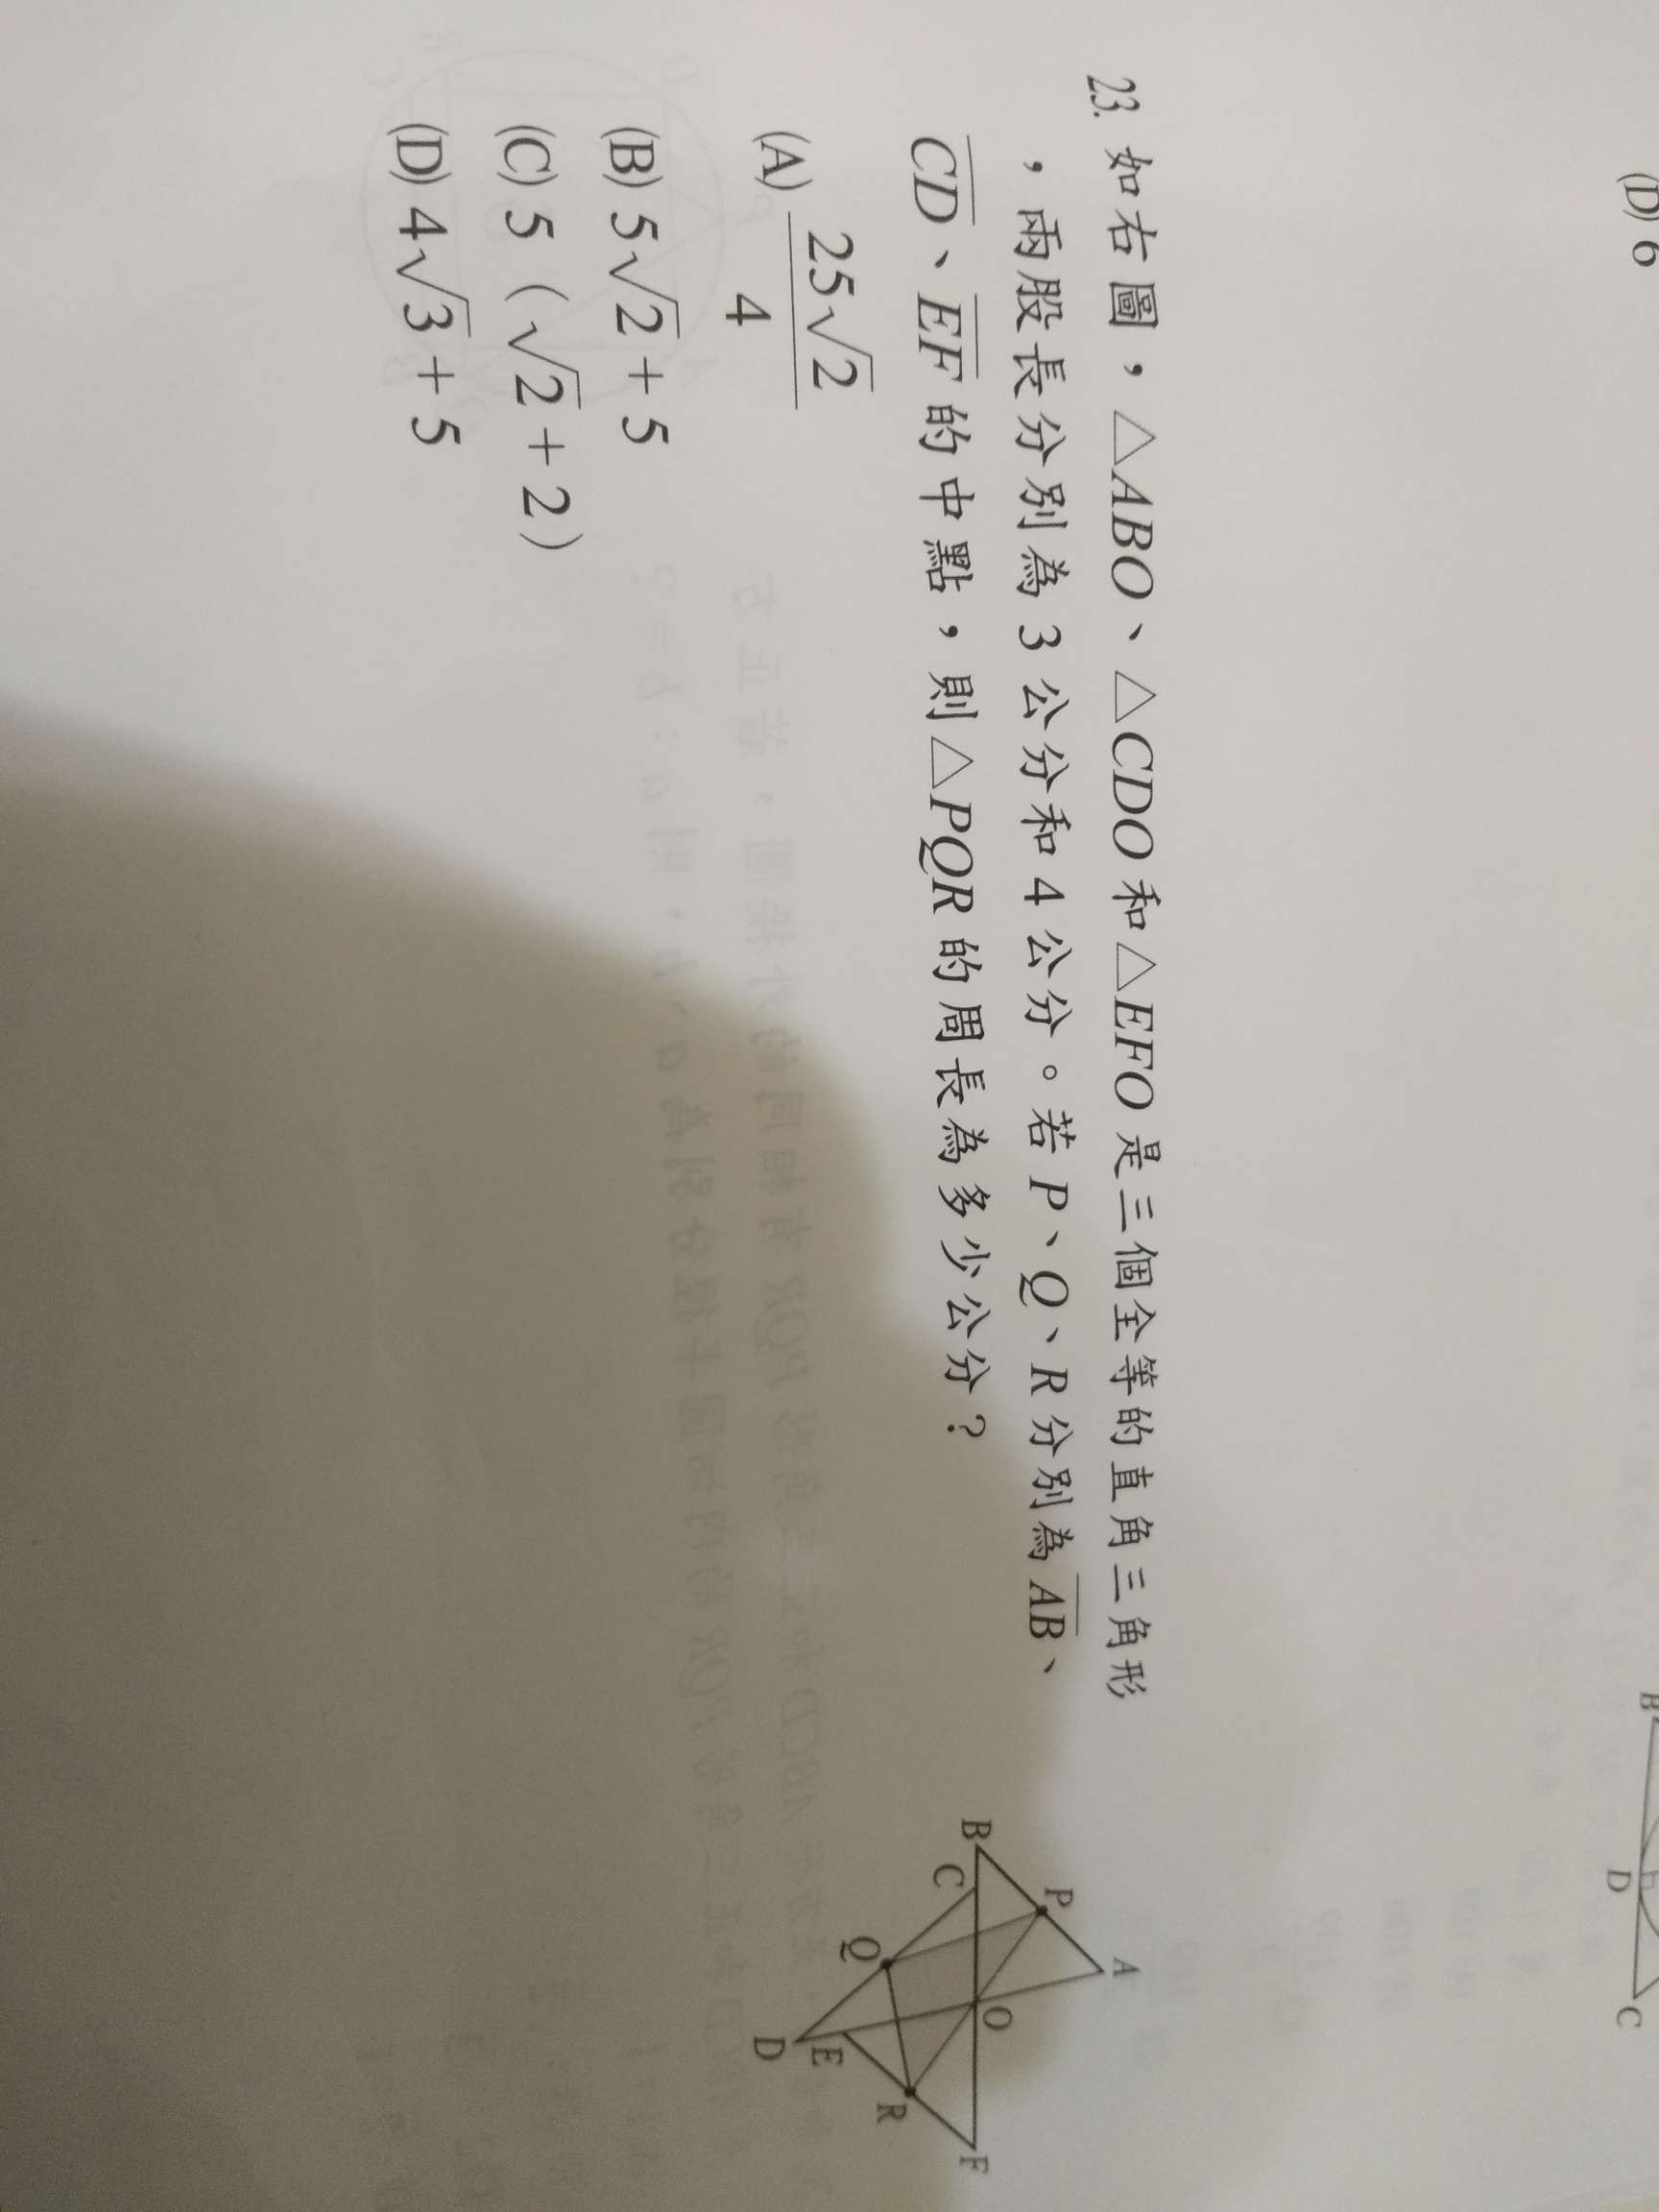 (D) 6
B
D
C
23. 如右圖，△ABO、△CDO 和△EFO 是三個全等的直角三角形
，兩股長分別為 3 公分和 4 公分。若 P、Q、R 分別為 AB、
CD、EF 的中點，則△PQR 的周長為多少公分？
(A) 25√2/4
(B) 5√2 + 5
(C) 5（√2 + 2）
(D) 4√3 + 5
A
P
B
C
O
Q
F
R
E
D